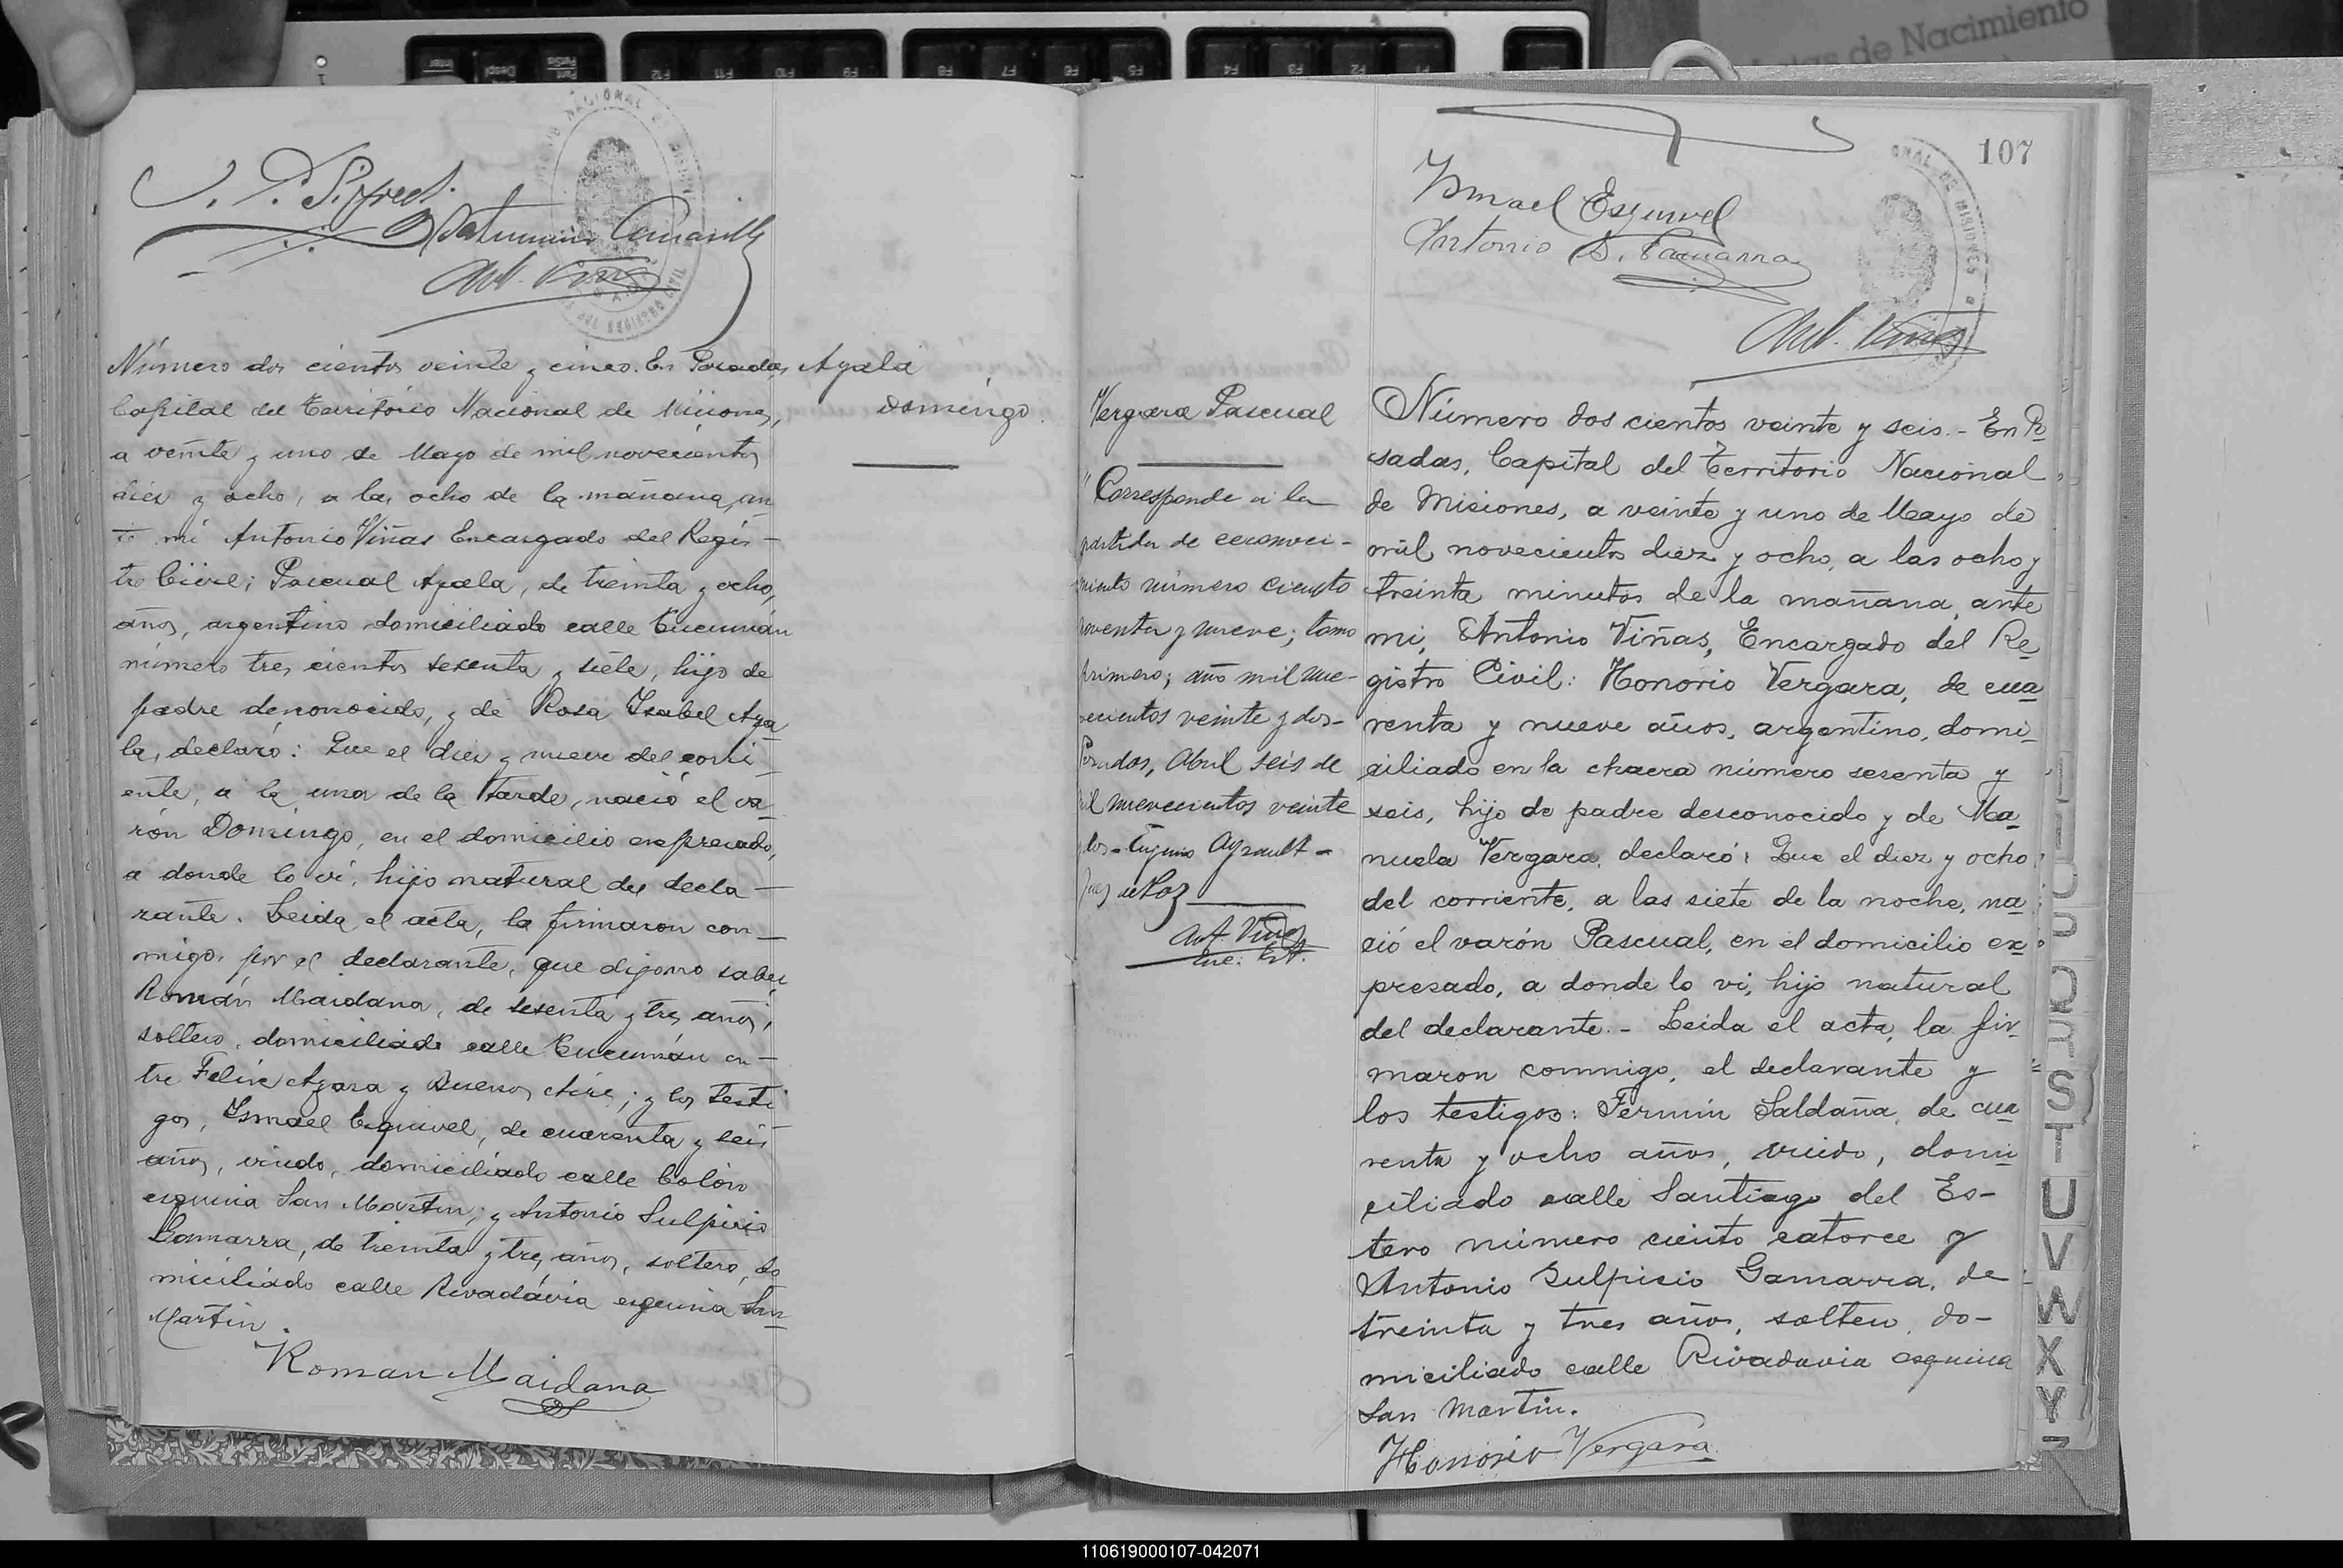 Número dos cientos veinte y cinco. En Posadas,
Capital del Territorio Nacional de Misiones,
a veinte y uno de Mayo de mil novecientos
diez y ocho, a las ocho de la mañana, an
te mi Antonio Viñas Encargado del Regis-
tro Civil; Pascual Ayala, de treinta y ocho,
años, argentino domiciliado calle Tucumán
número tres cientos sesenta y siete, hijo de
padre desconocido, y de Rosa Isabel Aya
la, declaró: Que el diez y nueve del corri
ente, a la una de la tarde, nació el va
rón Domingo, en el domicilio expresado,
a donde lo ví, hijo natural del decla-
rante. Leida el acta, la firmaron con-
migo, por el declarante, que dijo no saber
Román Maidana, de sesenta y tres años,
soltero, domiciliado calle Tucumán en-
tre Felix Azara y Buenos Aires; y los testi
gos, Ismael Esquivel, de cuarenta y seis
años, viudo, domiciliado calle Colón
esquina San Martin; y Antonio Sulpicio
Gamarra, de treinta y tres años, soltero, do
miciliado calle Rivadávia esquina San
Martin.
Roman Maidana
Ayala
Domingo.
107
Ismael Esquivel
Antonio S. Gamarra
Ant. Viñas
Vergara Pascual
"Corresponde a la
partida de reconoci-
miento número ciento
noventa y nueve; tomo
primero; año mil nue-
vecientos veinte y dos-
Posadas, Abril seis de
mil nuevecientos veinte
y dos-
Juez de Paz
Ant. Viñas
Número dos cientos veinte y seis.- En Po
sadas, Capital del Territorio Nacional
de Misiones, a veinte y uno de Mayo de
mil novecientos diez y ocho, a las ocho y
treinta minutos de la mañana, ante
mi, Antonio Viñas, Encargado del Re
gistro Civil: Honorio Vergara, de cua
renta y nueve años, argentino, domi
ciliado en la chacra número sesenta y
seis, hijo de padre desconocido y de Ma
nuela Vergara, declaró: Que el diez y ocho
del corriente, a las siete de la noche, na
ció el varón Pascual, en el domicilio ex
presado, a donde lo vi, hijo natural
del declarante.- Leida el acta, la fir
maron conmigo, el declarante y
los testigos: Fermin Saldaña, de cua
renta y ocho años, viudo, domi
ciliado calle Santiago del Es-
tero número ciento catorce y
Antonio Sulpicio Gamarra, de
treinta y tres años, soltero, do-
miciliado calle Rivadavia esquina
San Martin.
Honorio Vergara
S
T
U
V
W
X
Y
Z
110619000107-042071